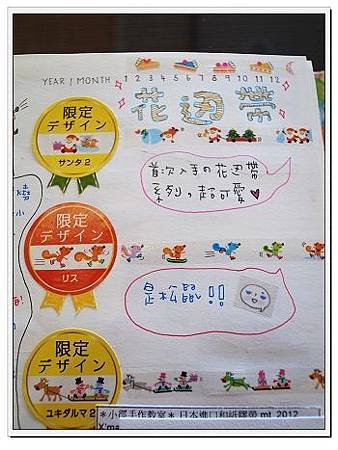 YEAR / MONTH 1 2 3 4 5 6 7 8 9 10 11 12
花邊帶
限定
デザイン
サンタ2
首次入手の花邊帶
系列，超可愛♥
限定
デザイン
リス
是松鼠!!
限定
デザイン
ユキダルマ2
＊小徑手作教室＊ 日本進口和紙膠帶 mt 2012
X'ma